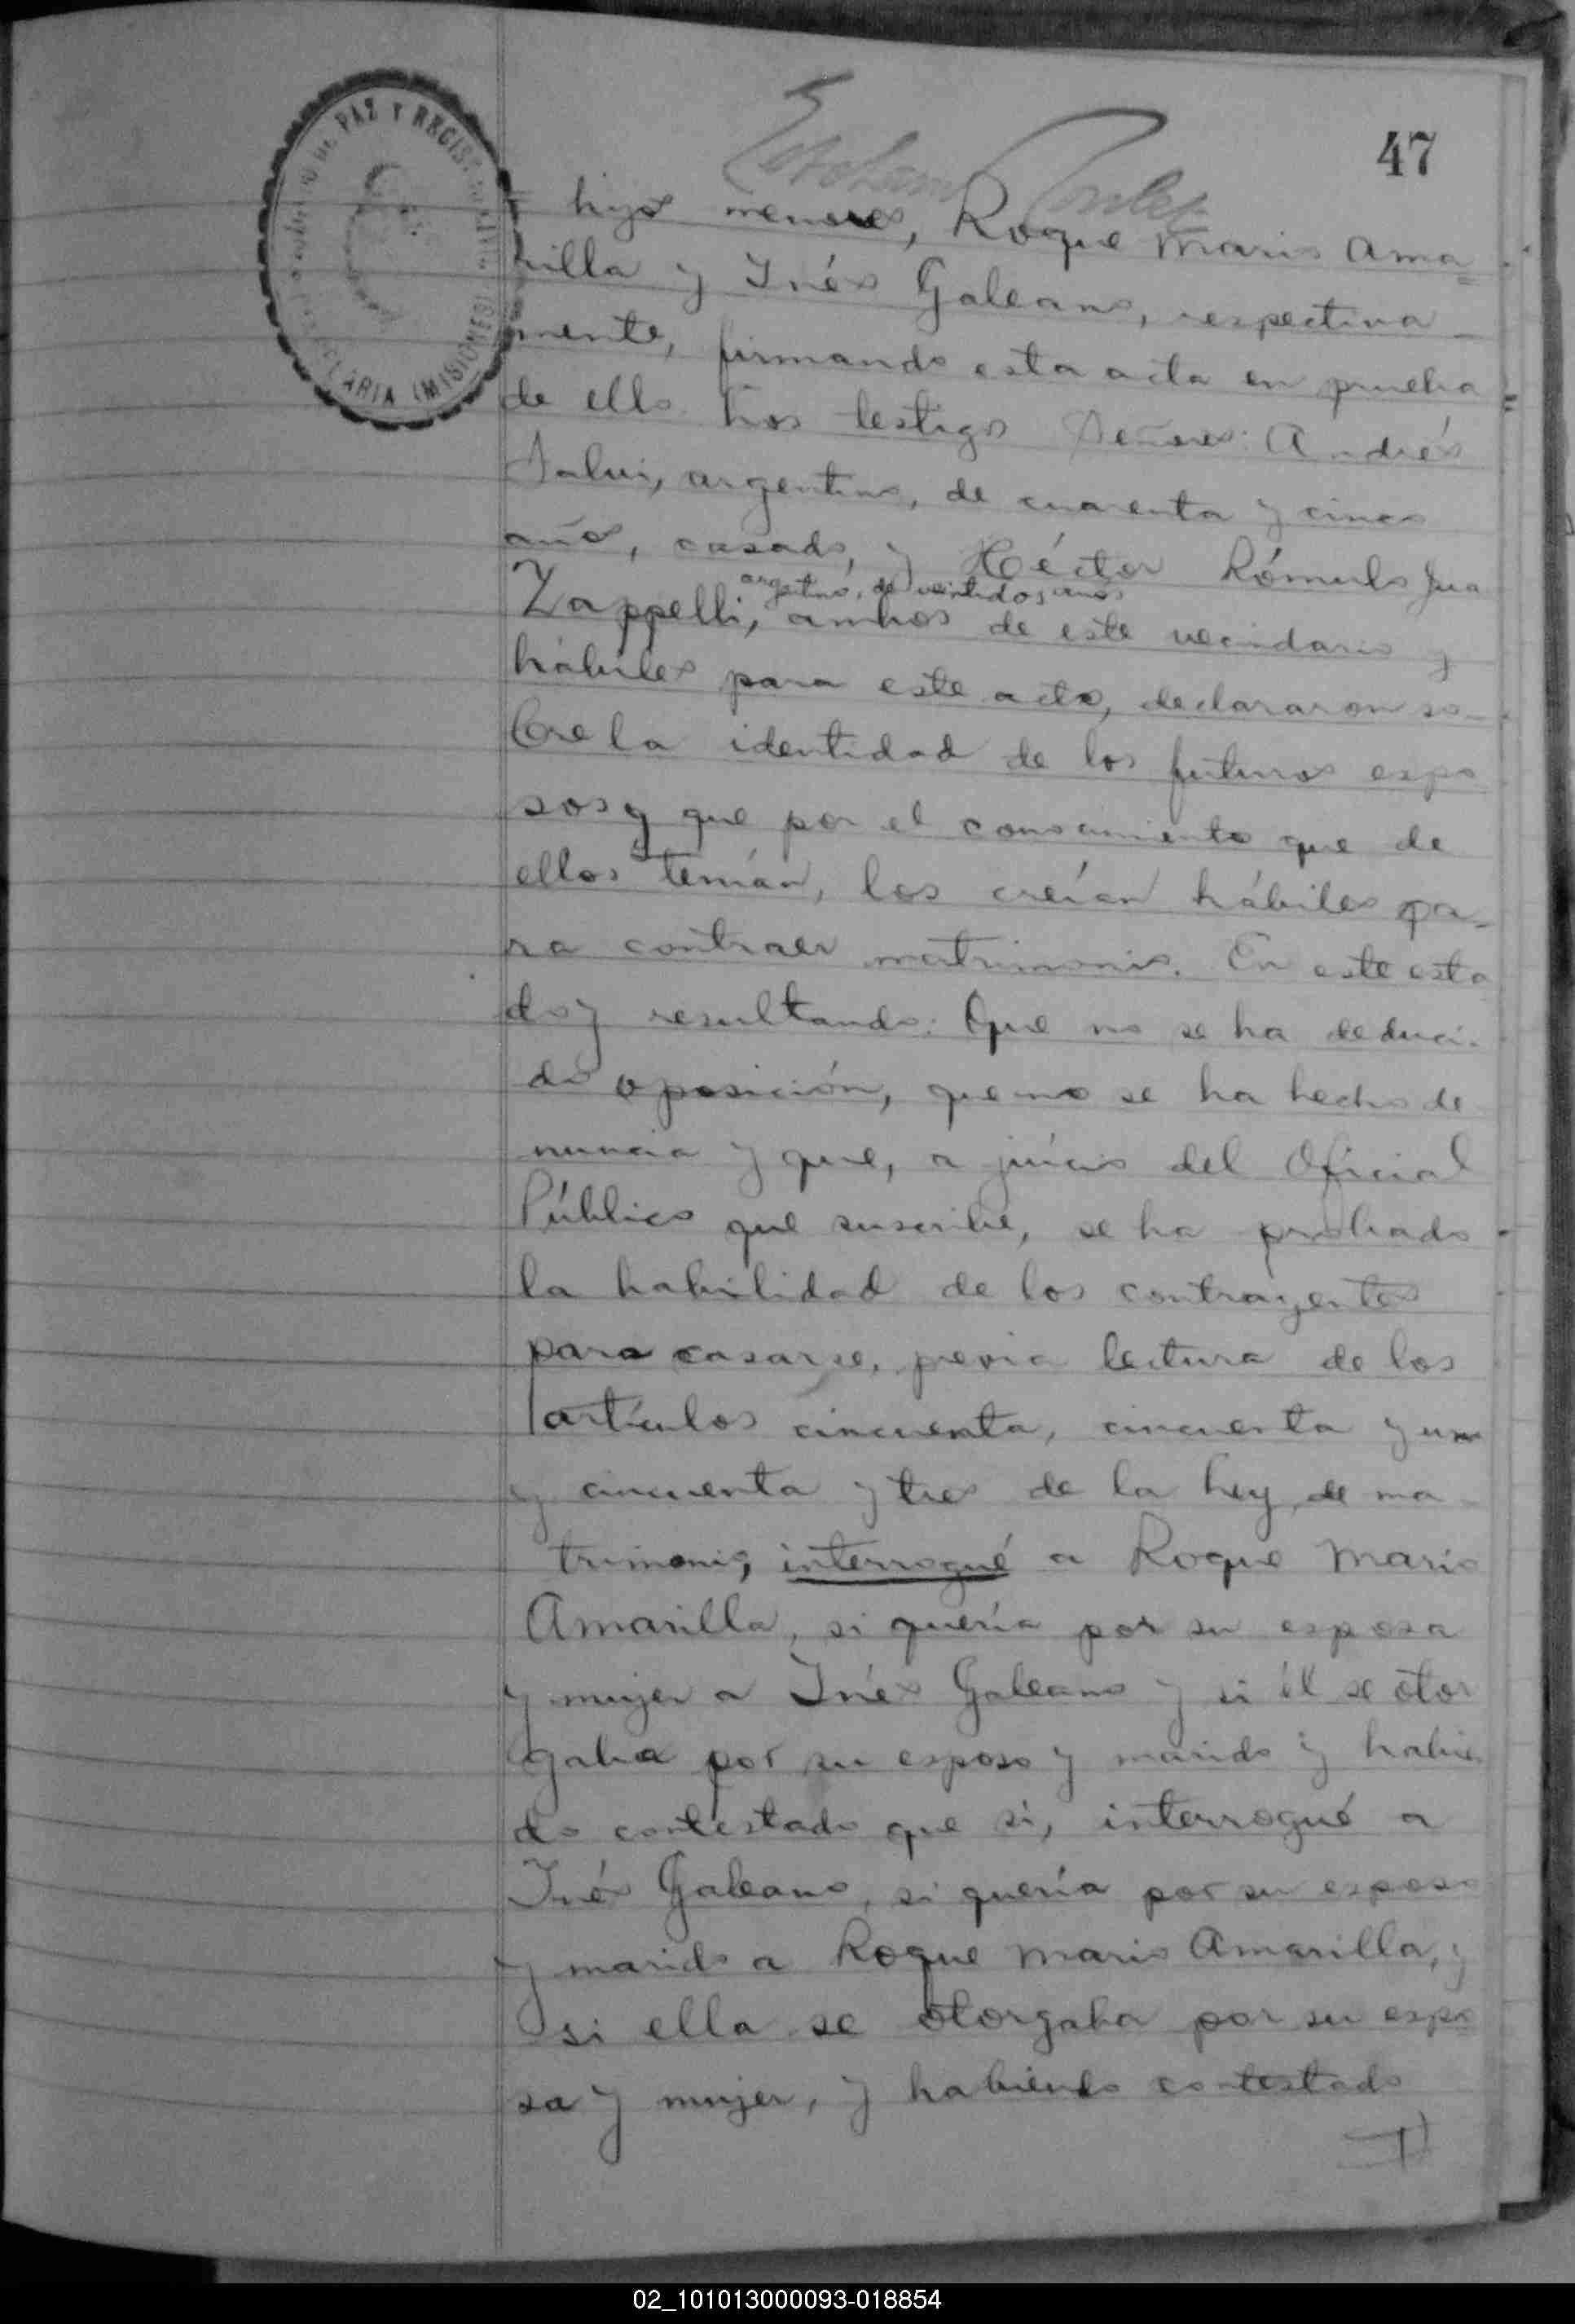 47
PAZ Y REGIST
CLARIA (MISIONES)
hijos menores, Roque Mario Ama=
rilla y Inés Galeano, respectiva-
mente, firmando esta acta en prueba
de ello. Los testigos Señores: Andrés
argentino, de cuarenta y cinco
años, casado, y Héctor Rómulo Jua
argentino, de veintidos años
Zappelli, ambos de este vecindario y
hábiles para este acto, declararon so-
bre la identidad de los futuros espo
sos y que por el conocimiento que de
ellos tenían, los creían hábiles pa-
ra contraer matrimonio. En este esta
do y resultando: Que no se ha deduci-
do oposición, que no se ha hecho de
nuncia y que, a juicio del Oficial
Público que suscribe, se ha probado
la habilidad de los contrayentes
para casarse, previa lectura de los
artículos cincuenta, cincuenta y uno
y cincuenta y tres de la Ley de ma-
trimonio, interrogué a Roque Mario
Amarilla, si quería por su esposa
y mujer a Inés Galeano y si él se otor
gaba por su esposo y marido y habien
do contestado que sí, interrogué a
Inés Galeano, si quería por su esposo
y marido a Roque Mario Amarilla, y
si ella se otorgaba por su espo
sa y mujer, y habiendo contestado
02_101013000093-018854